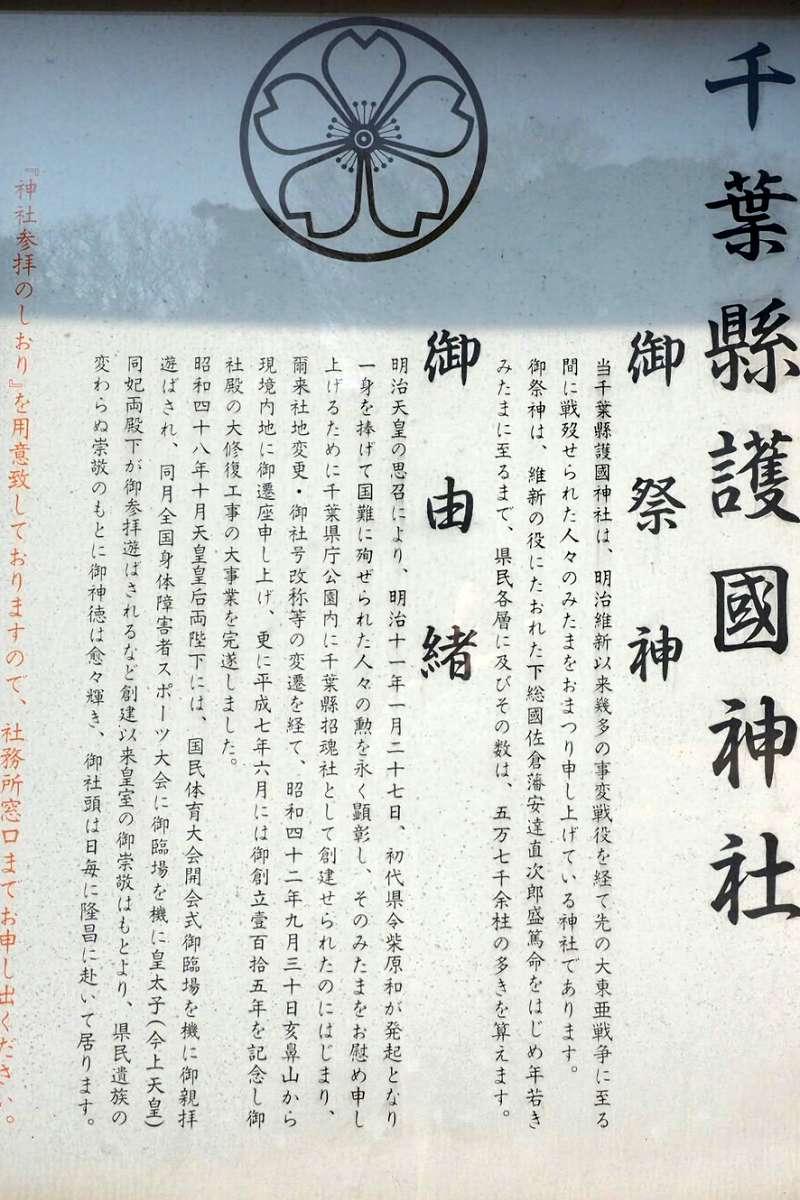 千葉縣護國神社
御祭神
当千葉縣護國神社は、明治維新以来幾多の事変戦役を経て先の大東亜戦争に至る
間に戦歿せられた人々のみたまをおまつり申し上げている神社であります。
御祭神は、維新の役にたおれた下総國佐倉藩安達直次郎盛篤命をはじめ年若き
みたまに至るまで、県民各層に及びその数は、五万七千余柱の多きを算えます。
御由緒
明治天皇の思召により、明治十一年一月二十七日、初代県令柴原和が発起となり
一身を捧げて国難に殉ぜられた人々の勲を永く顕彰し、そのみたまをお慰め申し
上げるために千葉県庁公園内に千葉縣招魂社として創建せられたのにはじまり、
爾来社地変更・御社号改称等の変遷を経て、昭和四十二年九月三十日亥鼻山から
現境内地に御遷座申し上げ、更に平成七年六月には御創立壹百拾五年を記念し御
社殿の大修復工事の大事業を完遂しました。
昭和四十八年十月天皇皇后両陛下には、国民体育大会開会式御臨場を機に御親拝
遊ばされ、同月全国身体障害者スポーツ大会に御臨場を機に皇太子(今上天皇)
同妃両殿下が御参拝遊ばされるなど創建以来皇室の御崇敬はもとより、県民遺族の
変わらぬ崇敬のもとに御神徳は愈々輝き、御社頭は日毎に隆昌に赴いて居ります。
『神社参拝のしおり』を用意致しておりますので、社務所窓口までお申し出ください。